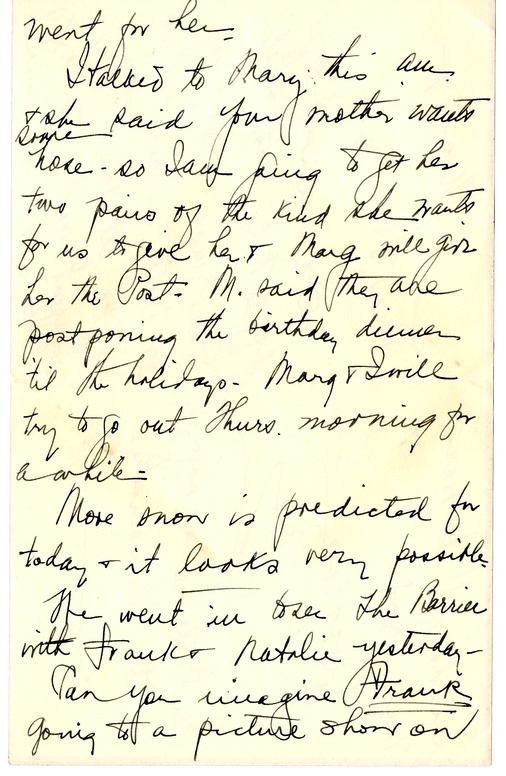 went for her -
I talked to Mary this am.
& she said your mother wants
some
hose - so I am going to get her
two pairs of the kind she wants
for us to give her & Marg will give
her the Post - M. said they are
postponing the birthday dinner
'til the holidays - Marg & I will
try to go out Thurs. morning for
a while -
More snow is predicted for
today & it looks very possible.
We went in to see The Barrier
with Frank & Natalie yesterday -
Can you imagine Frank
going to a picture show on